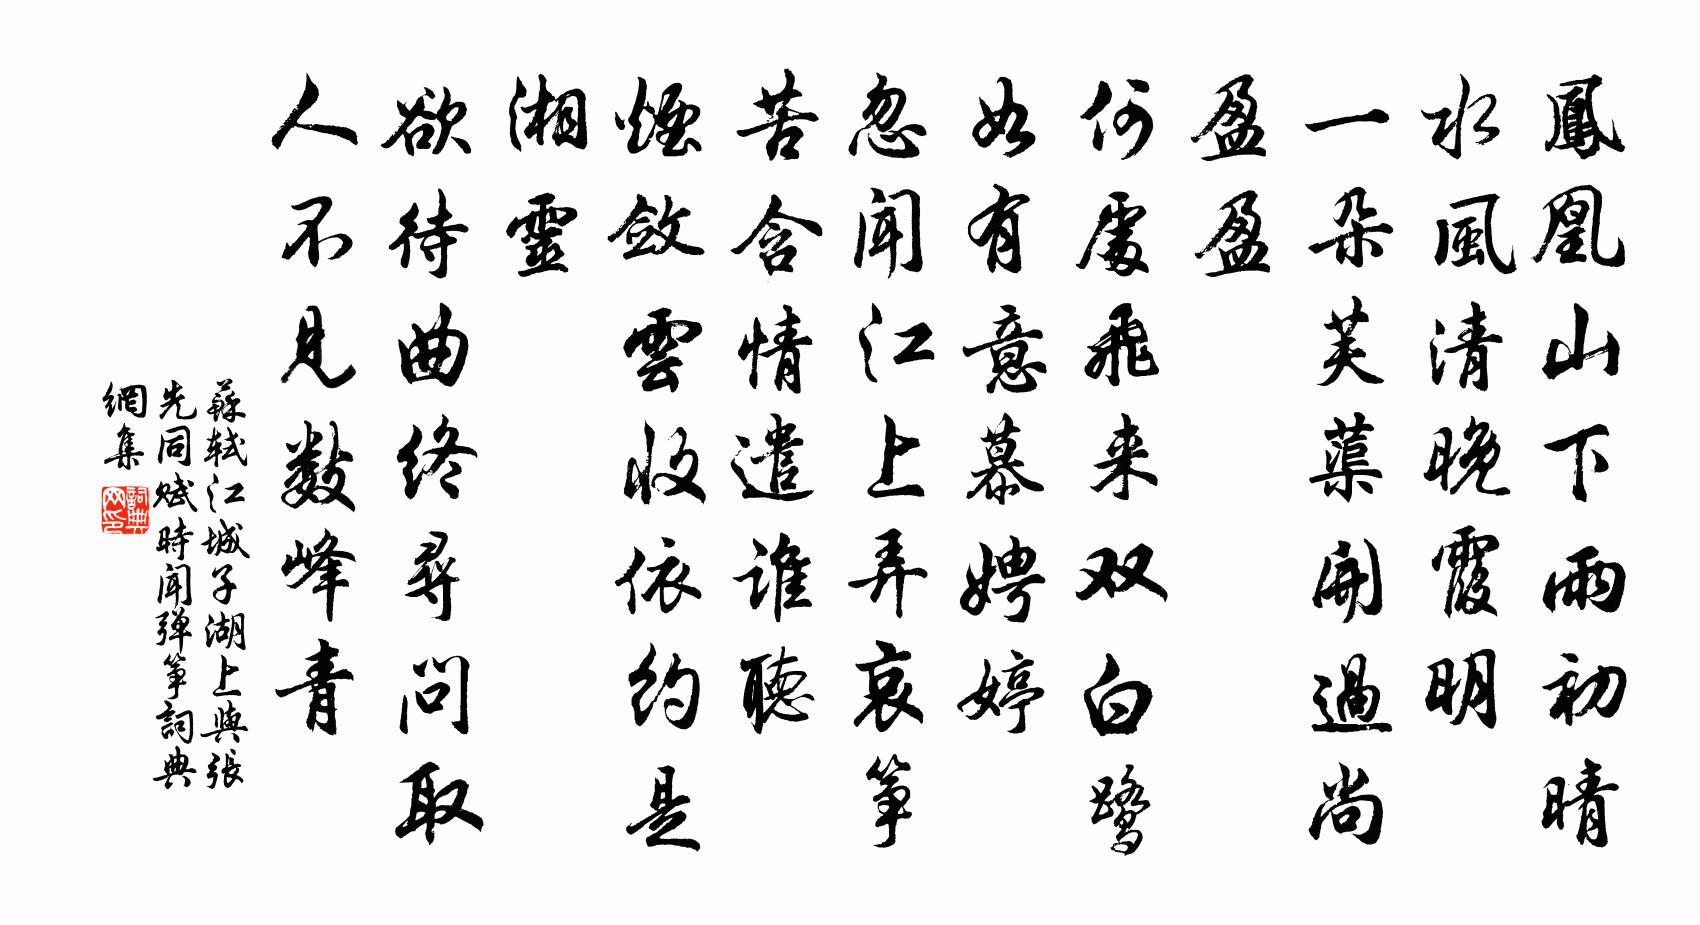 鳳凰山下雨初晴
水風清晚霞明
一朵芙蕖開過尚
盈盈
何處飛来双白鹭
如有意慕娉婷
忽聞江上弄哀筝
苦含情遣誰聽
煙斂雲收依約是
湘靈
欲待曲终尋問取
人不見数峰青
蘇轼江城子湖上與張
先同赋時聞弹筝詞典
網集
詞典网印